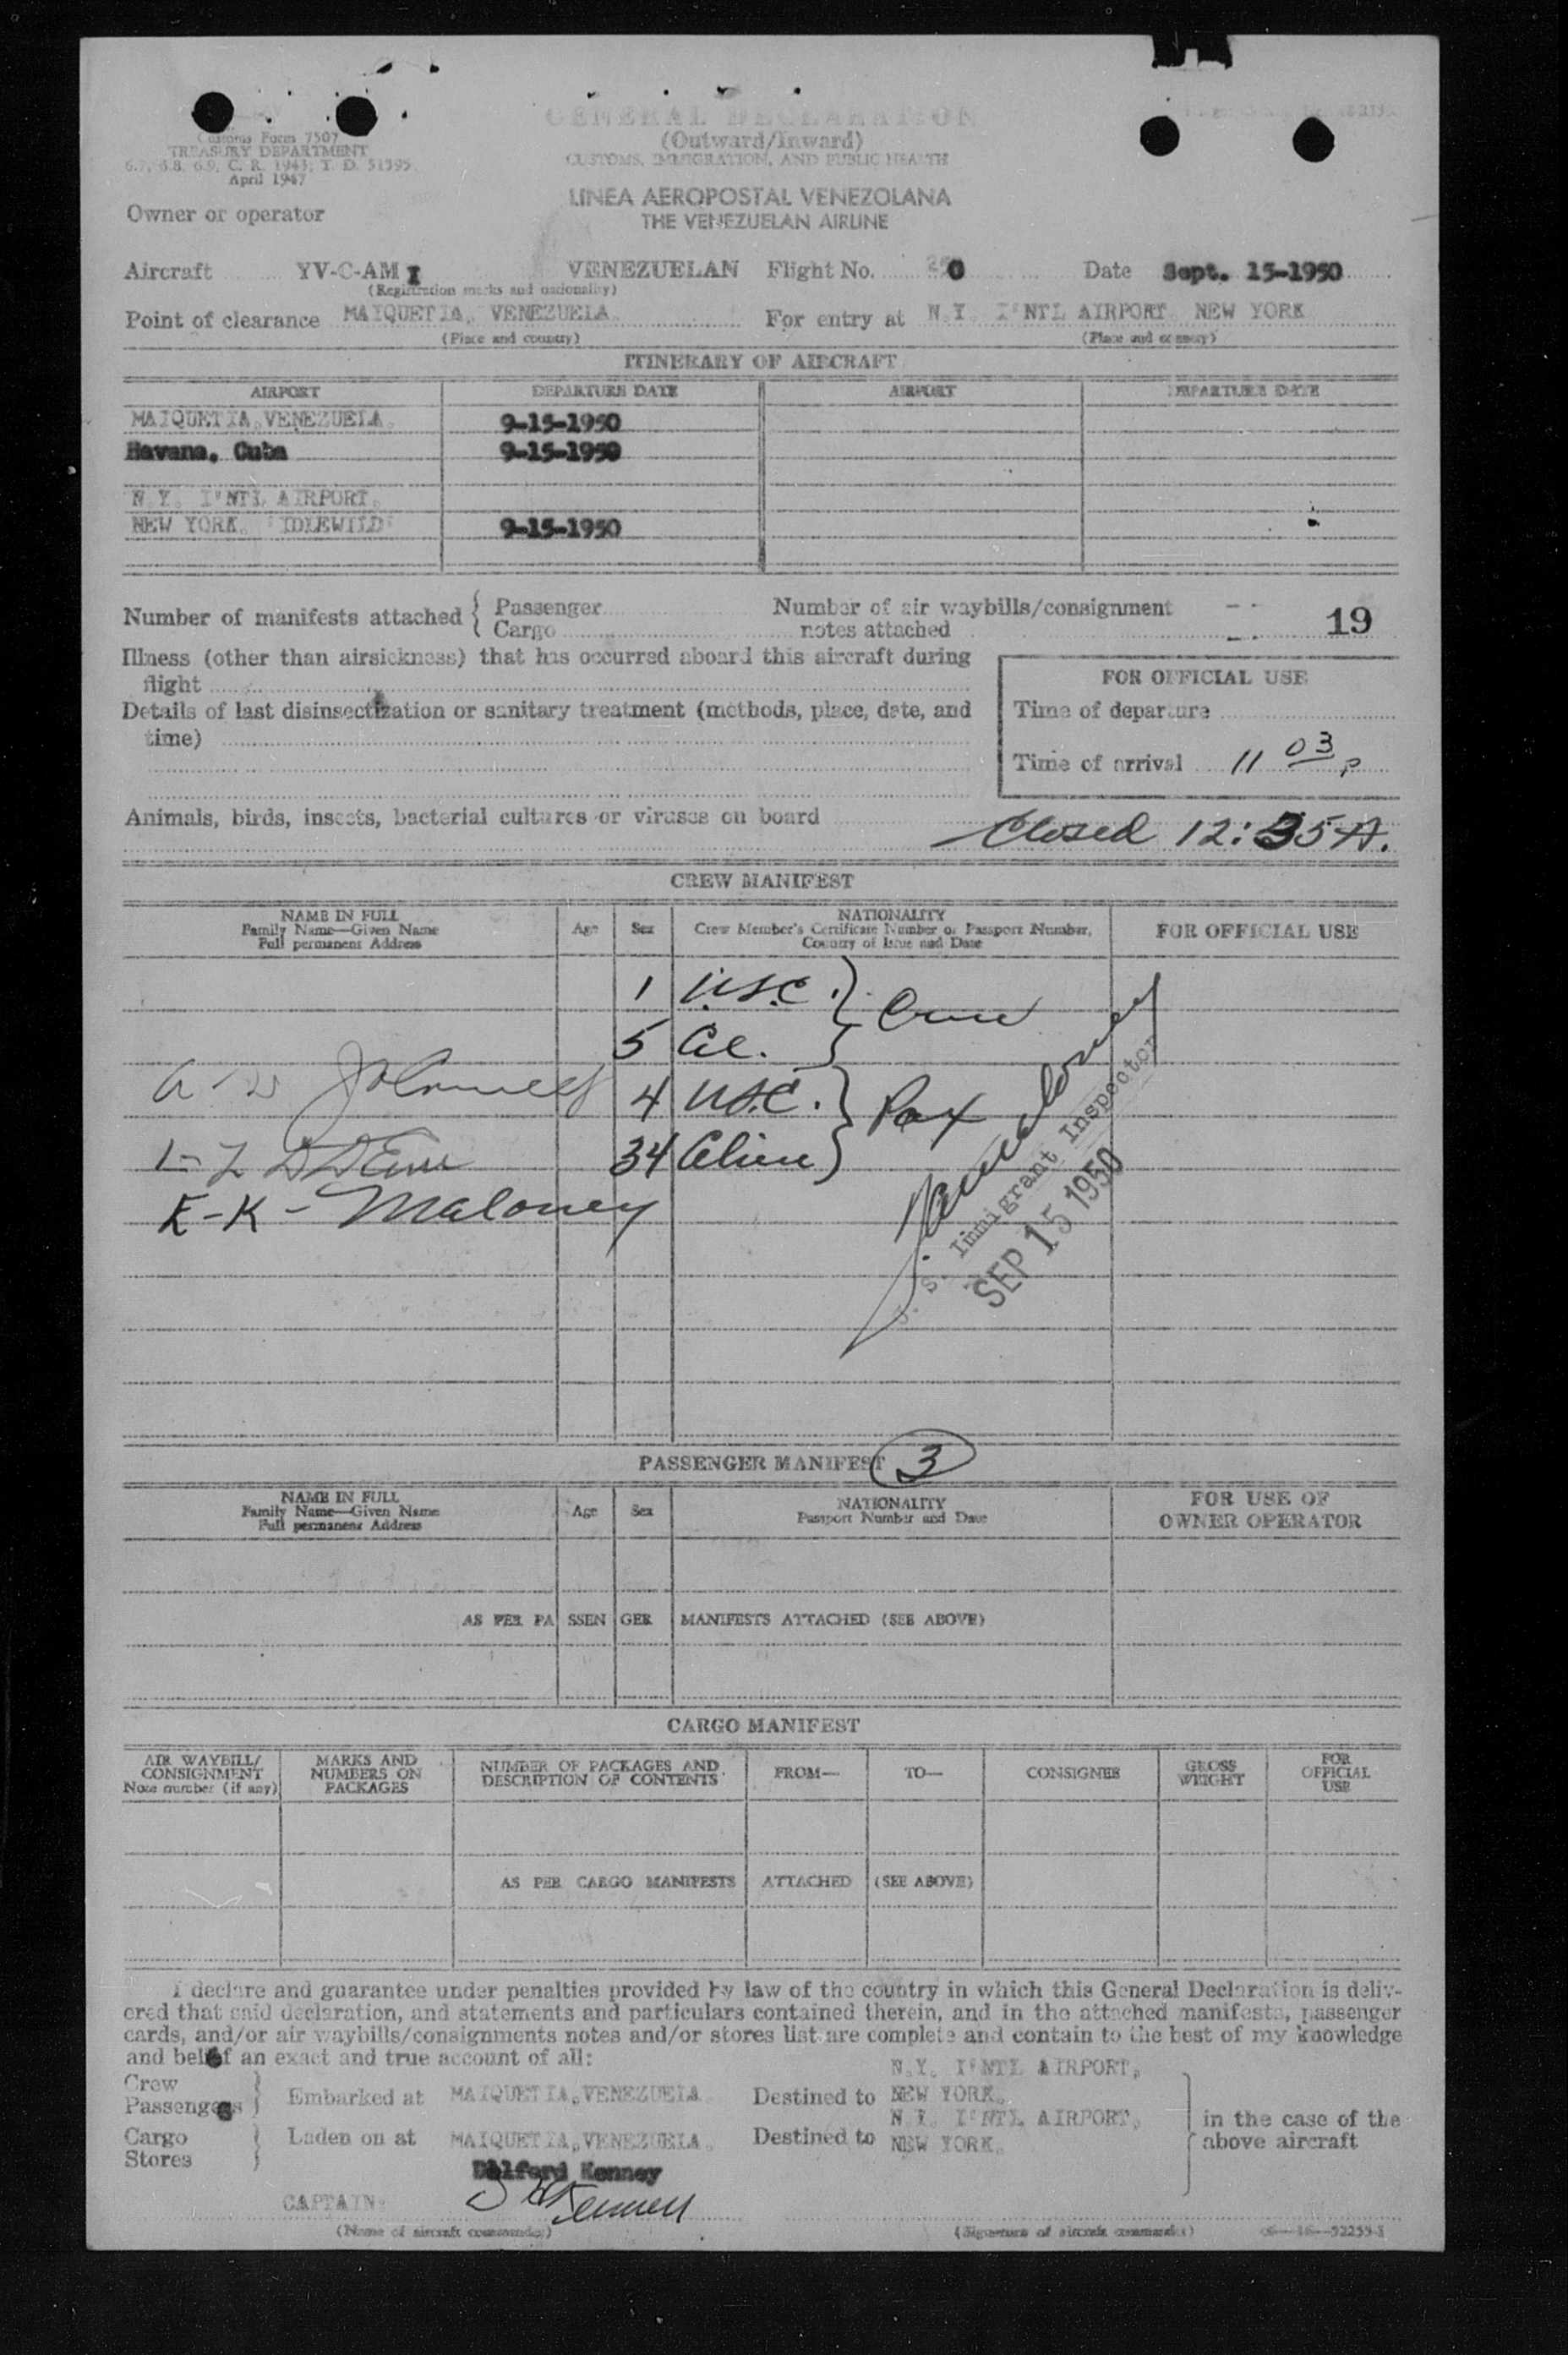 GENERAL DECLARATION
(Outward/Inward)
CUSTOMS, IMMIGRATION, AND PUBLIC HEALTH
Customs Form 7507
TREASURY DEPARTMENT
6.7, 6.8, 6.9, C. R. 1943; T. D. 51595
April 1947
LINEA AEROPOSTAL VENEZOLANA
THE VENEZUELAN AIRLINE
Owner or operator
Aircraft YV-C-AMI VENEZUELAN Flight No. Date Sept. 15-1950
(Registration marks and nationality)
Point of clearance MAIQUETIA, VENEZUELA. For entry at N.Y. I'NTL AIRPORT NEW YORK
(Place and country) (Place and country)
ITINERARY OF AIRCRAFT
AIRPORT DEPARTURE DATE AIRPORT DEPARTURE DATE
MAIQUETIA, VENEZUELA. 9-15-1950
Havana, Cuba 9-15-1950
N.Y. I'NTL AIRPORT.
NEW YORK. "IDLEWILD" 9-15-1950
Number of manifests attached { Passenger Number of air waybills/consignment
Cargo notes attached 19
Illness (other than airsickness) that has occurred aboard this aircraft during
flight
FOR OFFICIAL USE
Details of last disinsectization or sanitary treatment (methods, place, date, and
time)
Time of departure
Time of arrival 11 03 P
Animals, birds, insects, bacterial cultures or viruses on board
Closed 12:35 A.
CREW MANIFEST
NAME IN FULL
Family Name—Given Name
Full permanent Address
Age
Sex
NATIONALITY
Crew Member's Certificate Number or Passport Number,
Country of Issue and Date
FOR OFFICIAL USE
1 USC. } Crew
5 Al. }
4 USC. } Pax
34 Alien }
E-K-Maloney
U. S. Immigrant Inspector
SEP 15 1950
PASSENGER MANIFEST 3
NAME IN FULL
Family Name—Given Name
Full permanent Address
Age
Sex
NATIONALITY
Passport Number and Date
FOR USE OF
OWNER OPERATOR
AS PER PASSENGER MANIFESTS ATTACHED (SEE ABOVE)
CARGO MANIFEST
AIR WAYBILL/
CONSIGNMENT
Note number (if any)
MARKS AND
NUMBERS ON
PACKAGES
NUMBER OF PACKAGES AND
DESCRIPTION OF CONTENTS
FROM—
TO—
CONSIGNEE
GROSS
WEIGHT
FOR
OFFICIAL
USE
AS PER CARGO MANIFESTS ATTACHED (SEE ABOVE)
I declare and guarantee under penalties provided by law of the country in which this General Declaration is deliv-
ered that said declaration, and statements and particulars contained therein, and in the attached manifests, passenger
cards, and/or air waybills/consignments notes and/or stores list are complete and contain to the best of my knowledge
and belief an exact and true account of all:
Crew
Passengers } Embarked at MAIQUETIA, VENEZUELA. Destined to N.Y. I'NTL AIRPORT, NEW YORK.
Cargo
Stores } Laden on at MAIQUETIA, VENEZUELA. Destined to N.Y. I'NTL AIRPORT, NEW YORK.
in the case of the
above aircraft
Dilford Kenney
CAPTAIN:
(Name of aircraft commander) (Signature of aircraft commander)